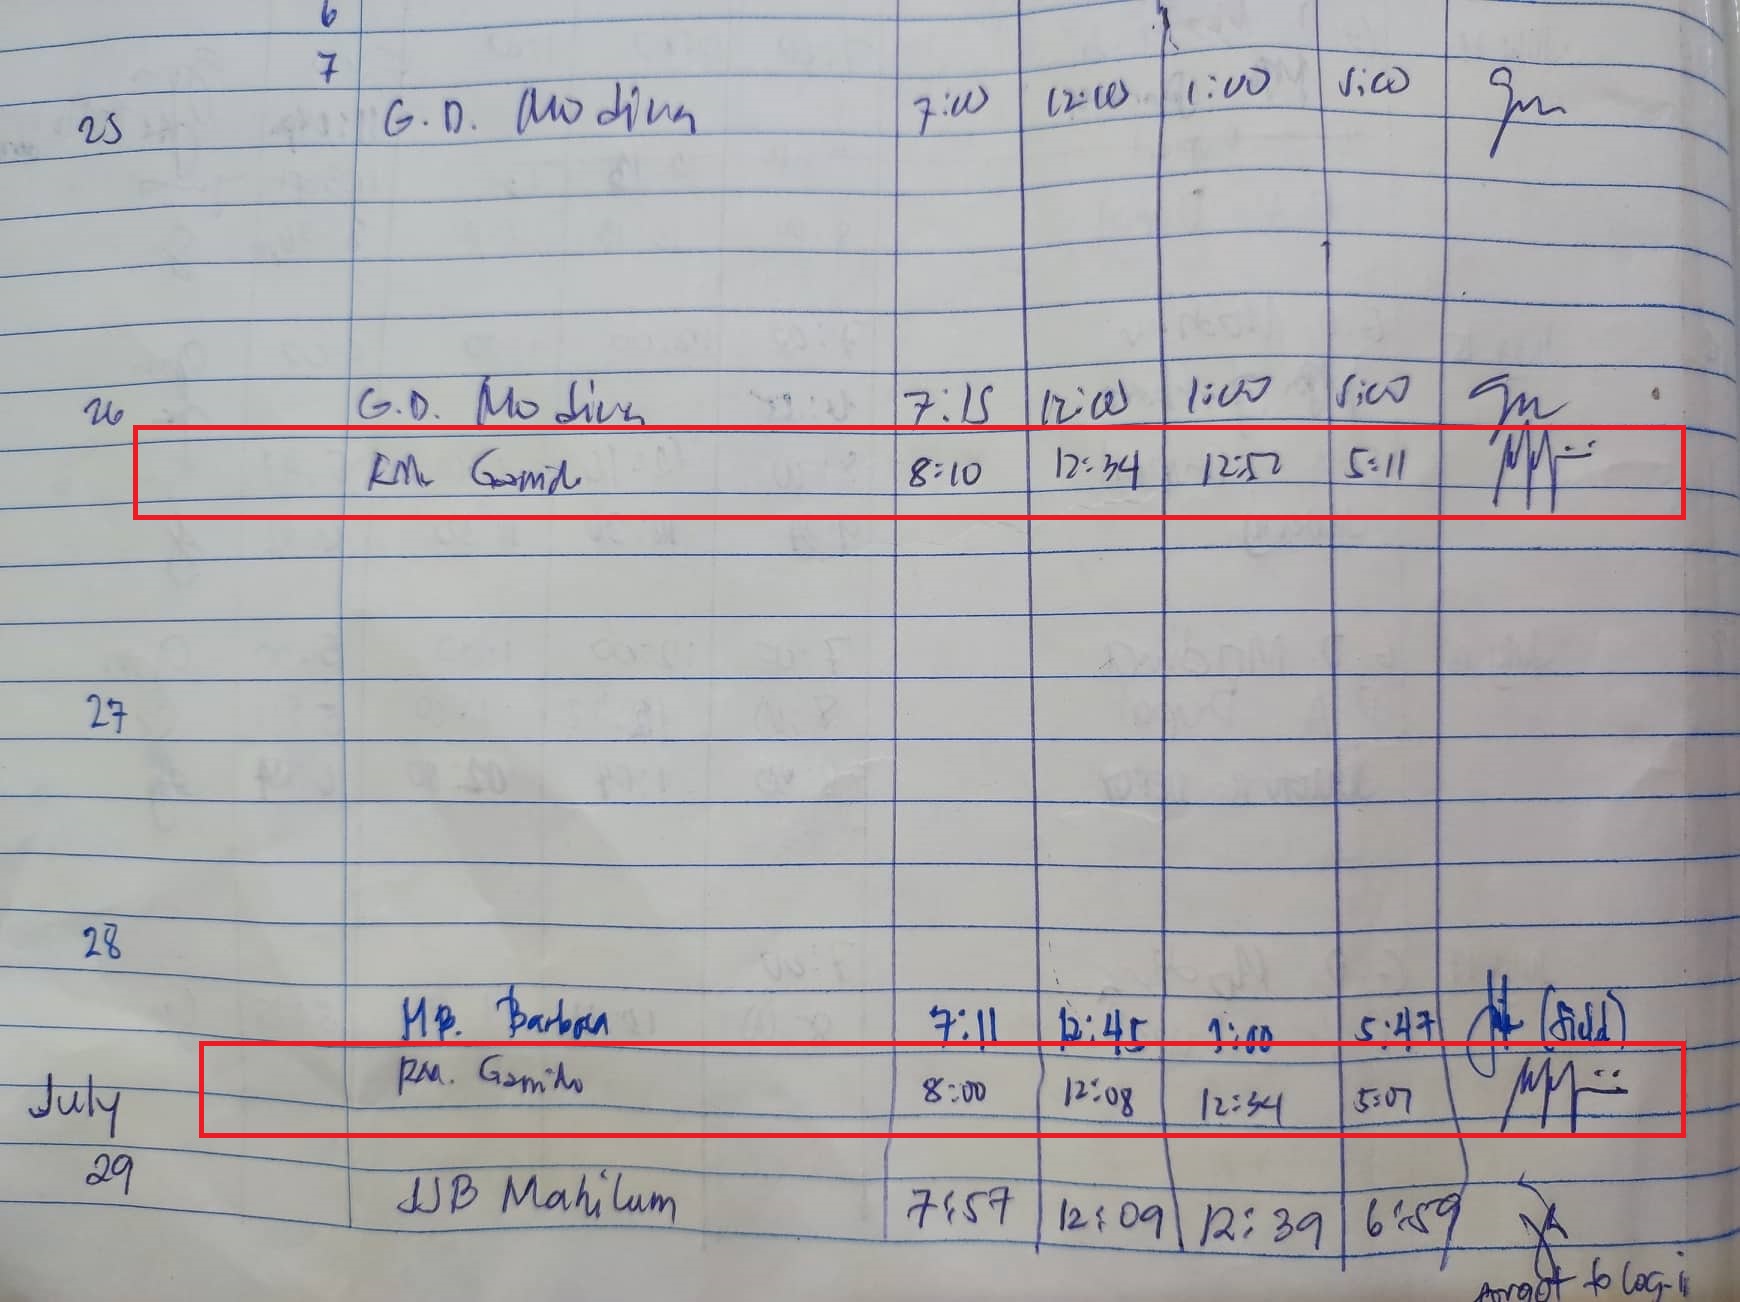 6
7
25 G.D. Modina 7:00 12:00 1:00 5:00
26 G.D. Modina 7:15 12:00 1:00 5:00
RM. Gamido 8:10 12:34 12:52 5:11
27
28
MB. Barbosa 7:11 12:45 1:00 5:47 (field)
RM. Gamido 8:00 12:08 12:34 5:07
July
29 JJB Mahilum 7:57 12:09 12:39 6:59
to log-i